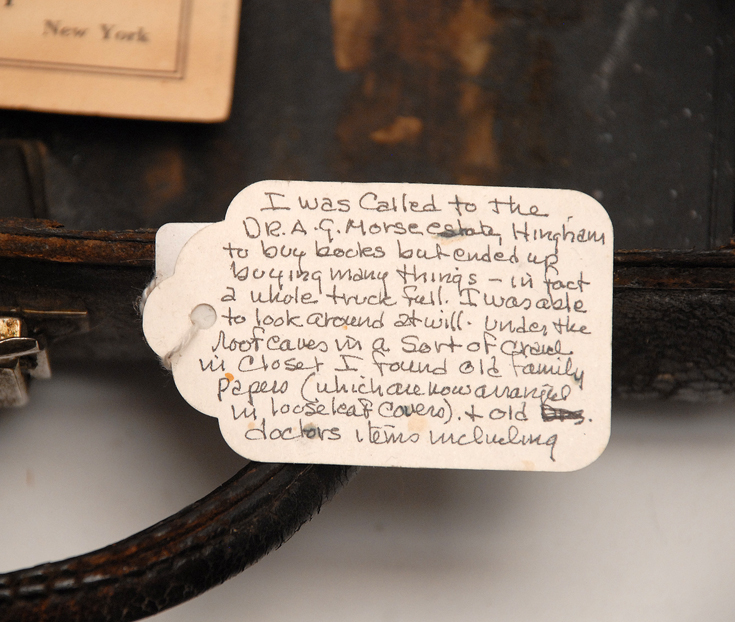 New York
I was Called to the
DR. A. G. Morse estate, Hingham
to buy books but ended up
buying many things - in fact
a whole truck full. I was able
to look around at will. Under the
roof eaves in a sort of crawl
in Closet I found old family
Papers (which are now arranged
in loose leaf covers). & old
doctors items including